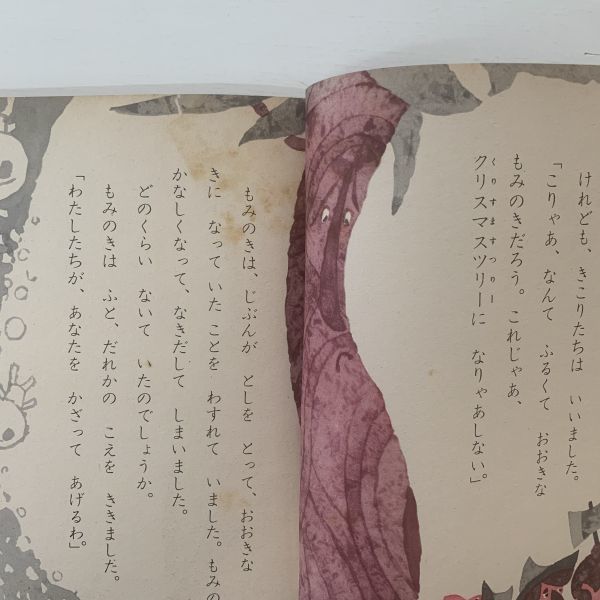 けれども、きこりたちは いいました。
「こりゃあ、なんて ふるくて おおきな
もみのきだろう。これじゃあ、
クリスマスツリーに なりゃあしない。」
くりすますつりー
もみのきは、じぶんが としを とって、おおきな
きに なって いた ことを わすれて いました。もみの
かなしくなって、なきだして しまいました。
どのくらい ないて いたのでしょうか。
もみのきは ふと、だれかの こえを ききました。
「わたしたちが、あなたを かざって あげるわ」